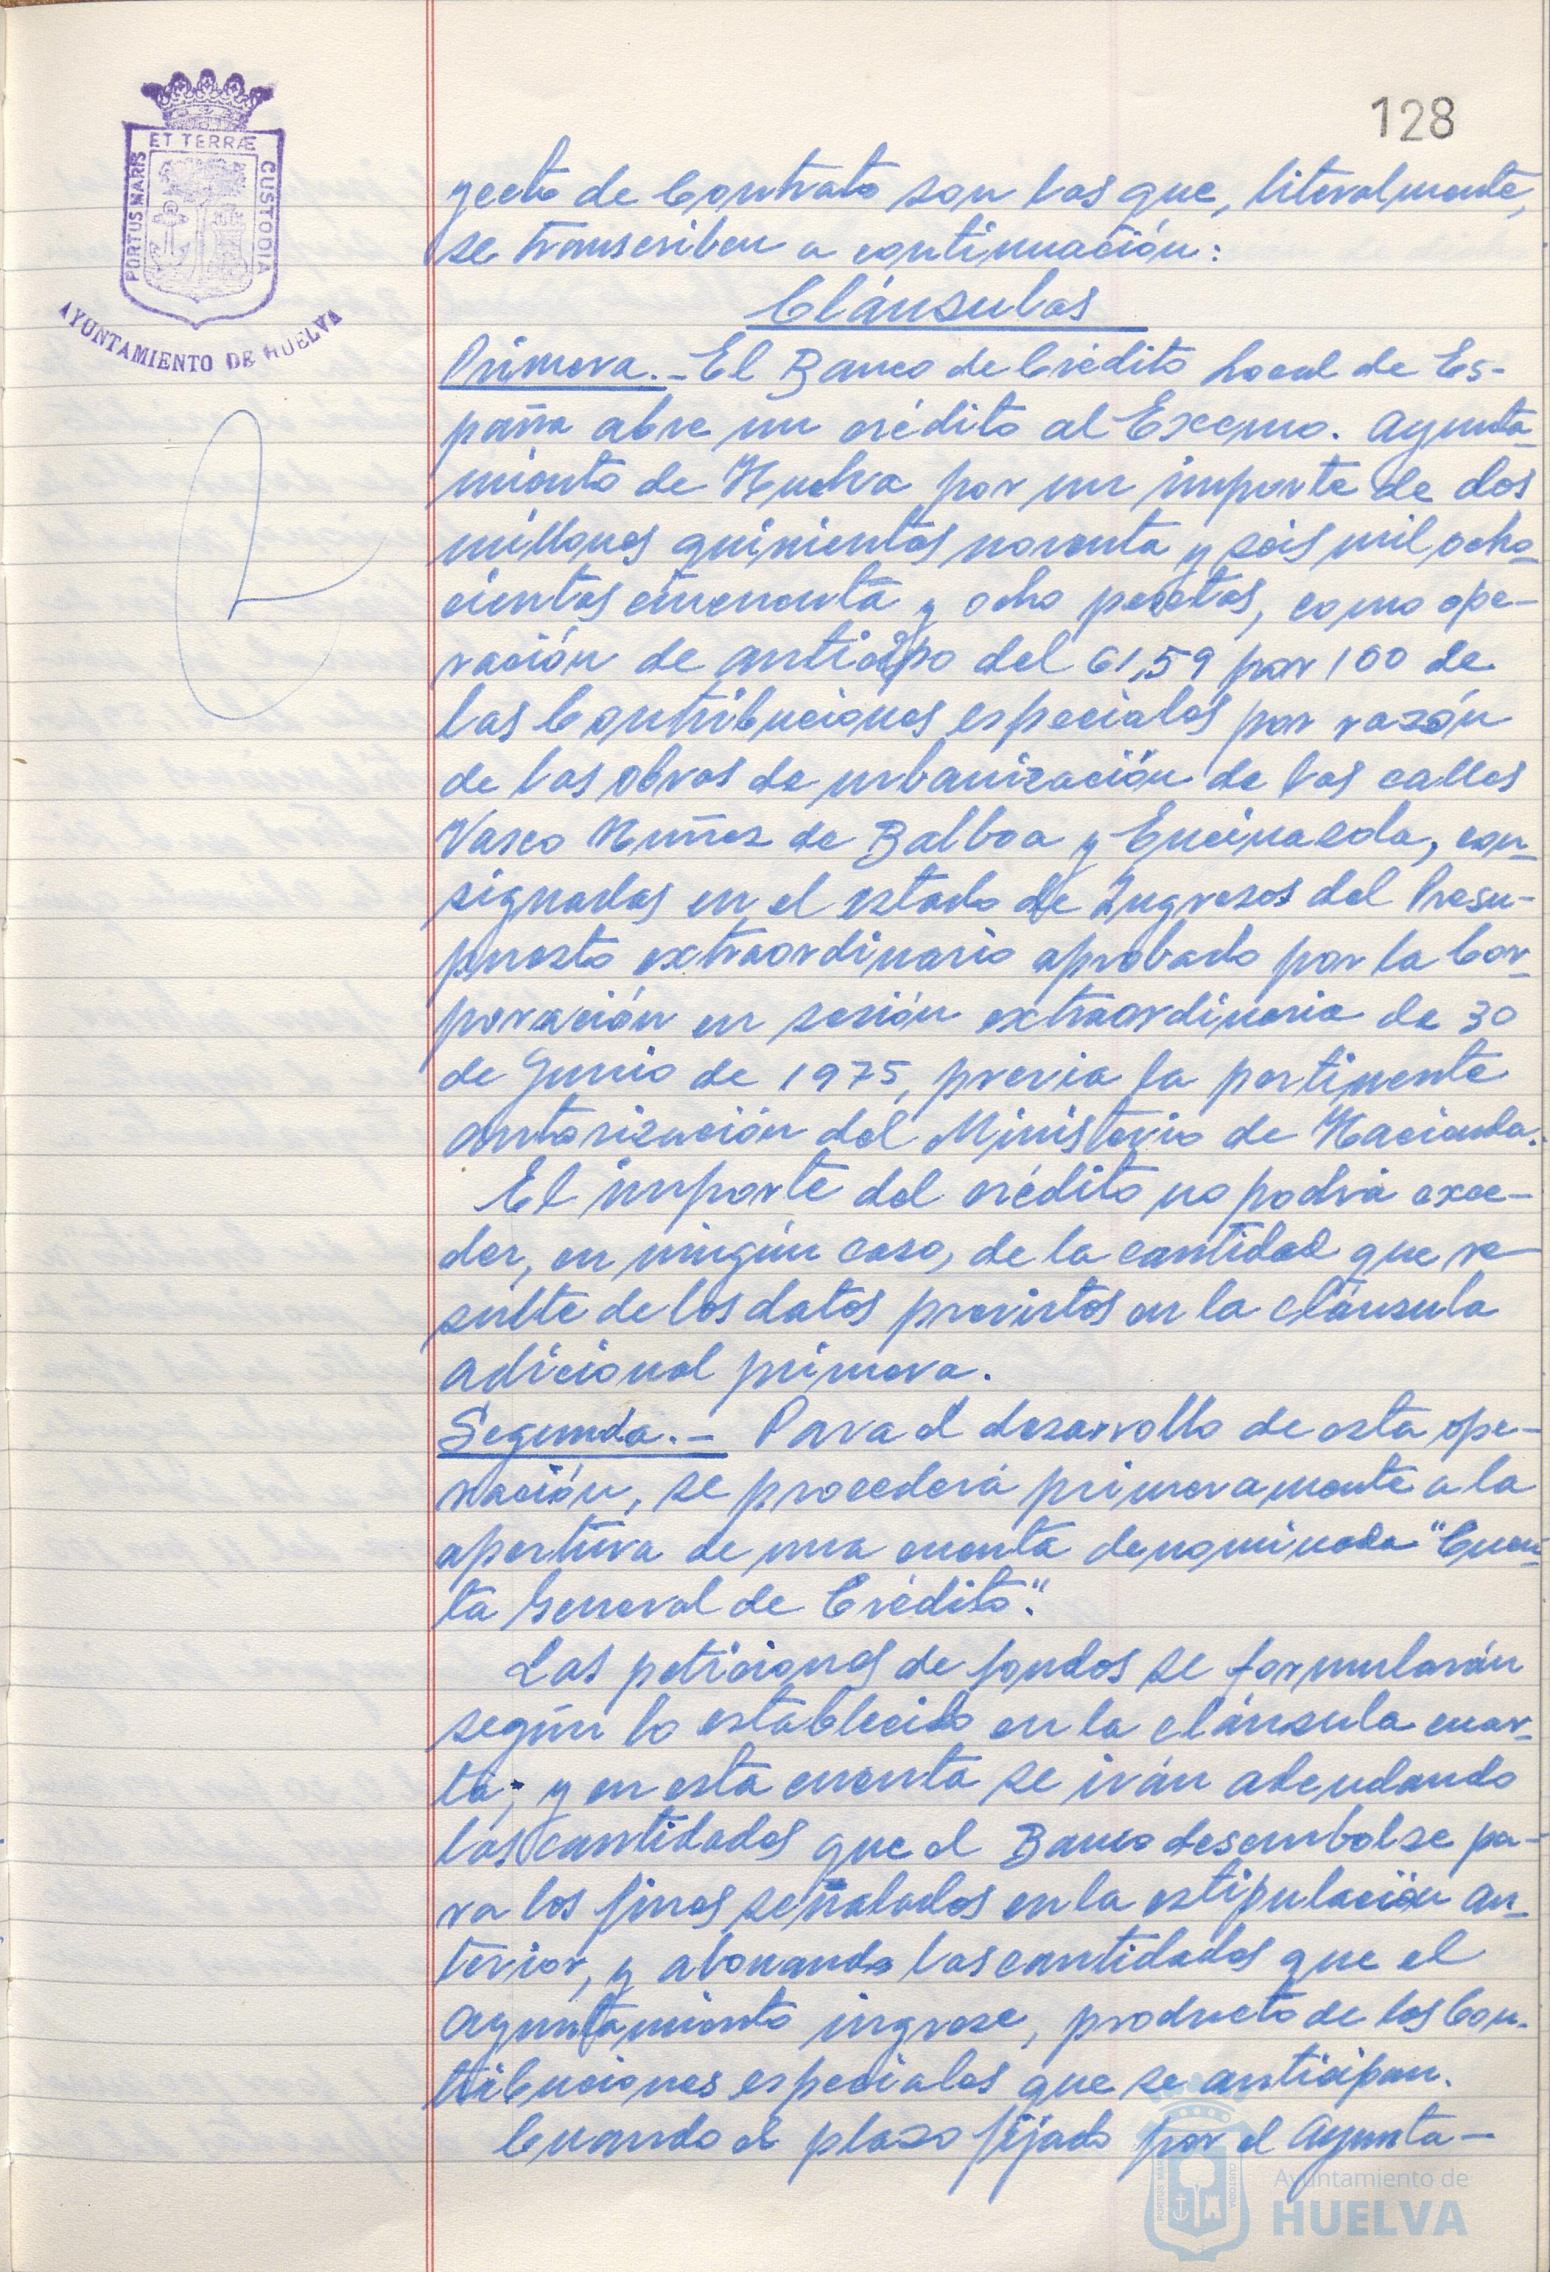 ET TERRÆ
PORTUS MARIS
CUSTODIA
AYUNTAMIENTO DE HUELVA
128
yecto de Contrato son las que, literalmente,
se transcriben a continuación:
Cláusulas
Primera.- El Banco de Crédito Local de Es-
paña abre un crédito al Excmo. Ayunta-
miento de Huelva por un importe de dos
millones quinientas noventa y seis mil ocho-
cientas cincuenta y ocho pesetas, como ope-
ración de anticipo del 61,59 por 100 de
las Contribuciones especiales por razón
de las obras de urbanización de las calles
Vasco Nuñez de Balboa y Encinasola, con-
signadas en el estado de Ingresos del Presu-
puesto extraordinario aprobado por la Cor-
poración en sesión extraordinaria de 30
de Junio de 1975, previa la pertinente
autorización del Ministerio de Hacienda.
El importe del crédito no podrá exce-
der, en ningún caso, de la cantidad que re-
sulte de los datos previstos en la cláusula
adicional primera.
Segunda.- Para el desarrollo de esta ope-
ración, se procederá primeramente a la
apertura de una cuenta denominada "Cuen-
ta General de Crédito".
Las peticiones de fondos se formularán
según lo establecido en la cláusula cuar-
ta; y en esta cuenta se irán adeudando
las cantidades que el Banco desembolse pa-
ra los fines señalados en la estipulación an-
terior, y abonando las cantidades que el
Ayuntamiento ingrese, producto de las Con-
tribuciones especiales que se anticipan.
Cuando el plazo fijado por el Ayunta-
Ayuntamiento de
HUELVA